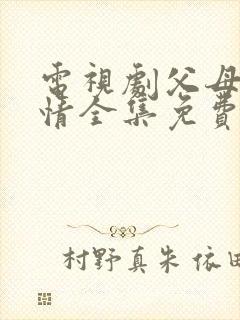 電視劇父母
情全集免費
村野真朱 依田